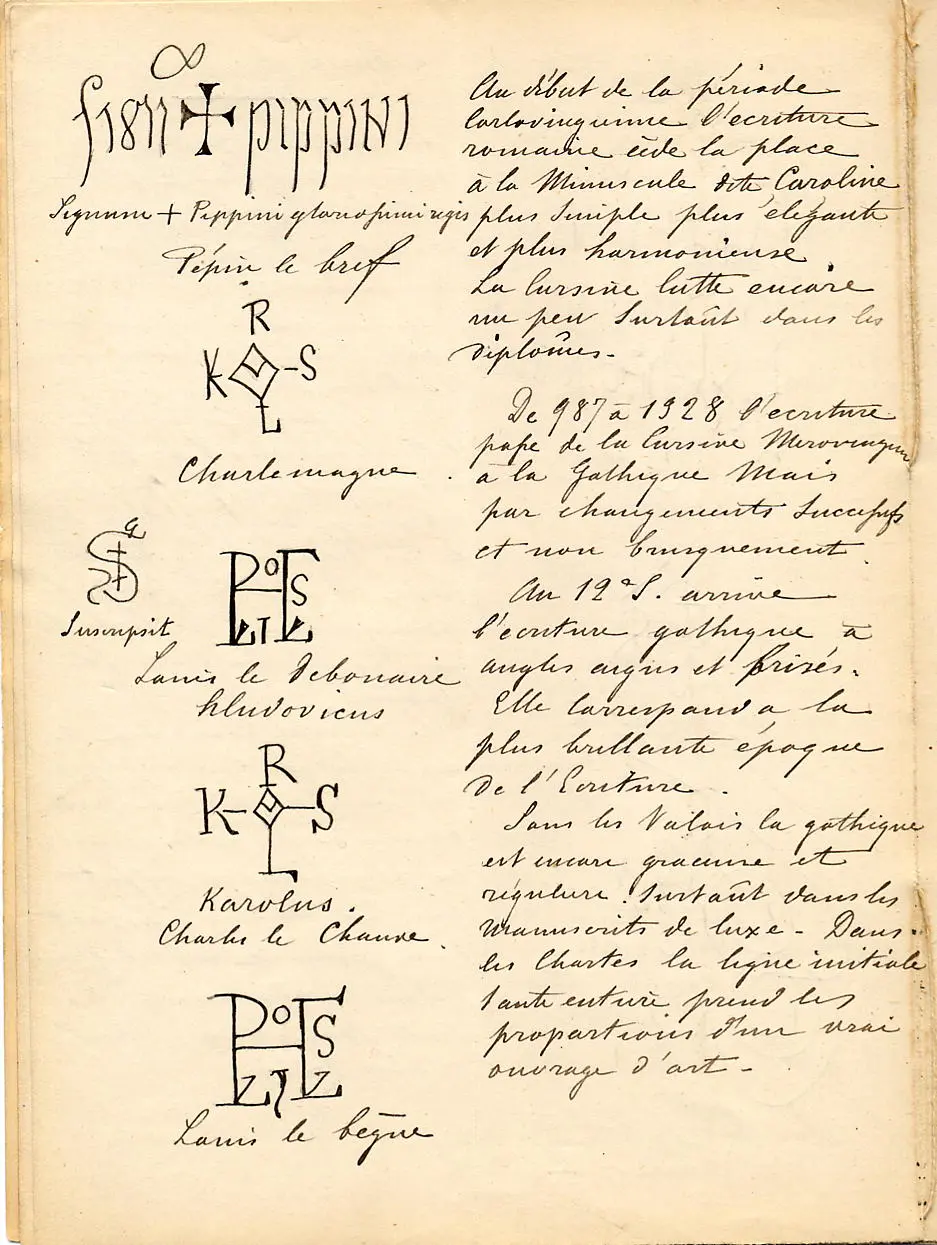 sign + pippini
Signum + Pippini gloriosissimi regis
Pépin le bref
R
K S
L
Charlemagne
Suscripsit
Louis le Debonaire
hludovicus
R
K S
L
Karolus.
Charles le Chauve.
Louis le bègue
Au début de la période
Carlovingienne l'ecriture
romaine cède la place
à la Minuscule dite Caroline
plus simple plus elégante
et plus harmonieuse
La Cursive lutte encore
un peu surtout dans les
diplômes.
De 987 à 1328 l'ecriture
passe de la Cursive
à la Gothique Mais
par changements successifs
et non brusquement
Au 12e S. arrive
l'ecriture gothique à
angles aigus et brisés.
Elle correspond a la
plus brillante époque
de l'Ecriture.
Sous les Valois la gothique
est encore gracieuse et
régulière. Surtout dans les
manuscrits de luxe - Dans
les Chartes la ligne initiale
toute entière prend les
proportions d'un vrai
ouvrage d'art -